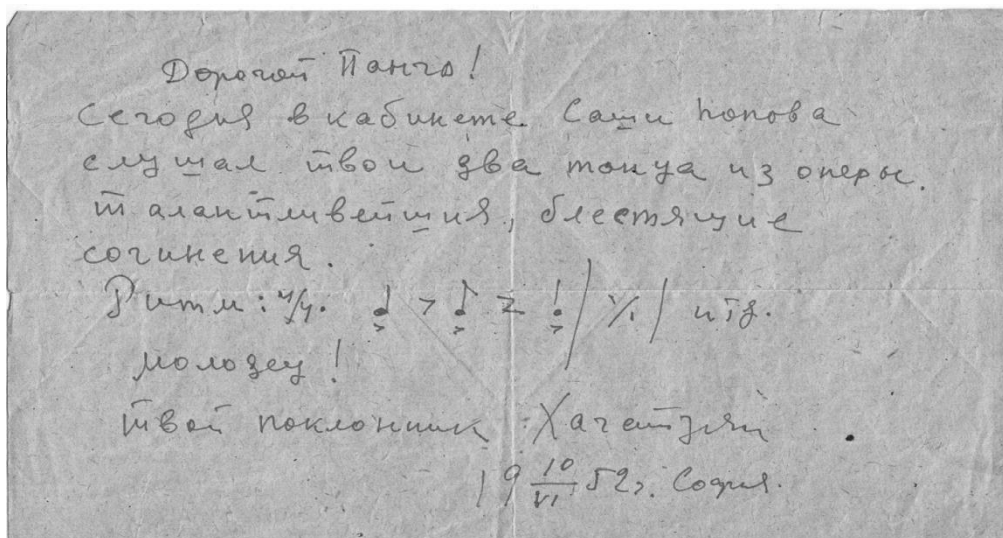 Дорогой Панчо!
Сегодня в кабинете Саши Попова
слушал твои два тонца из оперы.
Талантливейшия, блестящие
сочинения.
Ритм: 4/4. итд.
молодец!
твой поклонник Хачатурян
19 10/VI 52г. София.